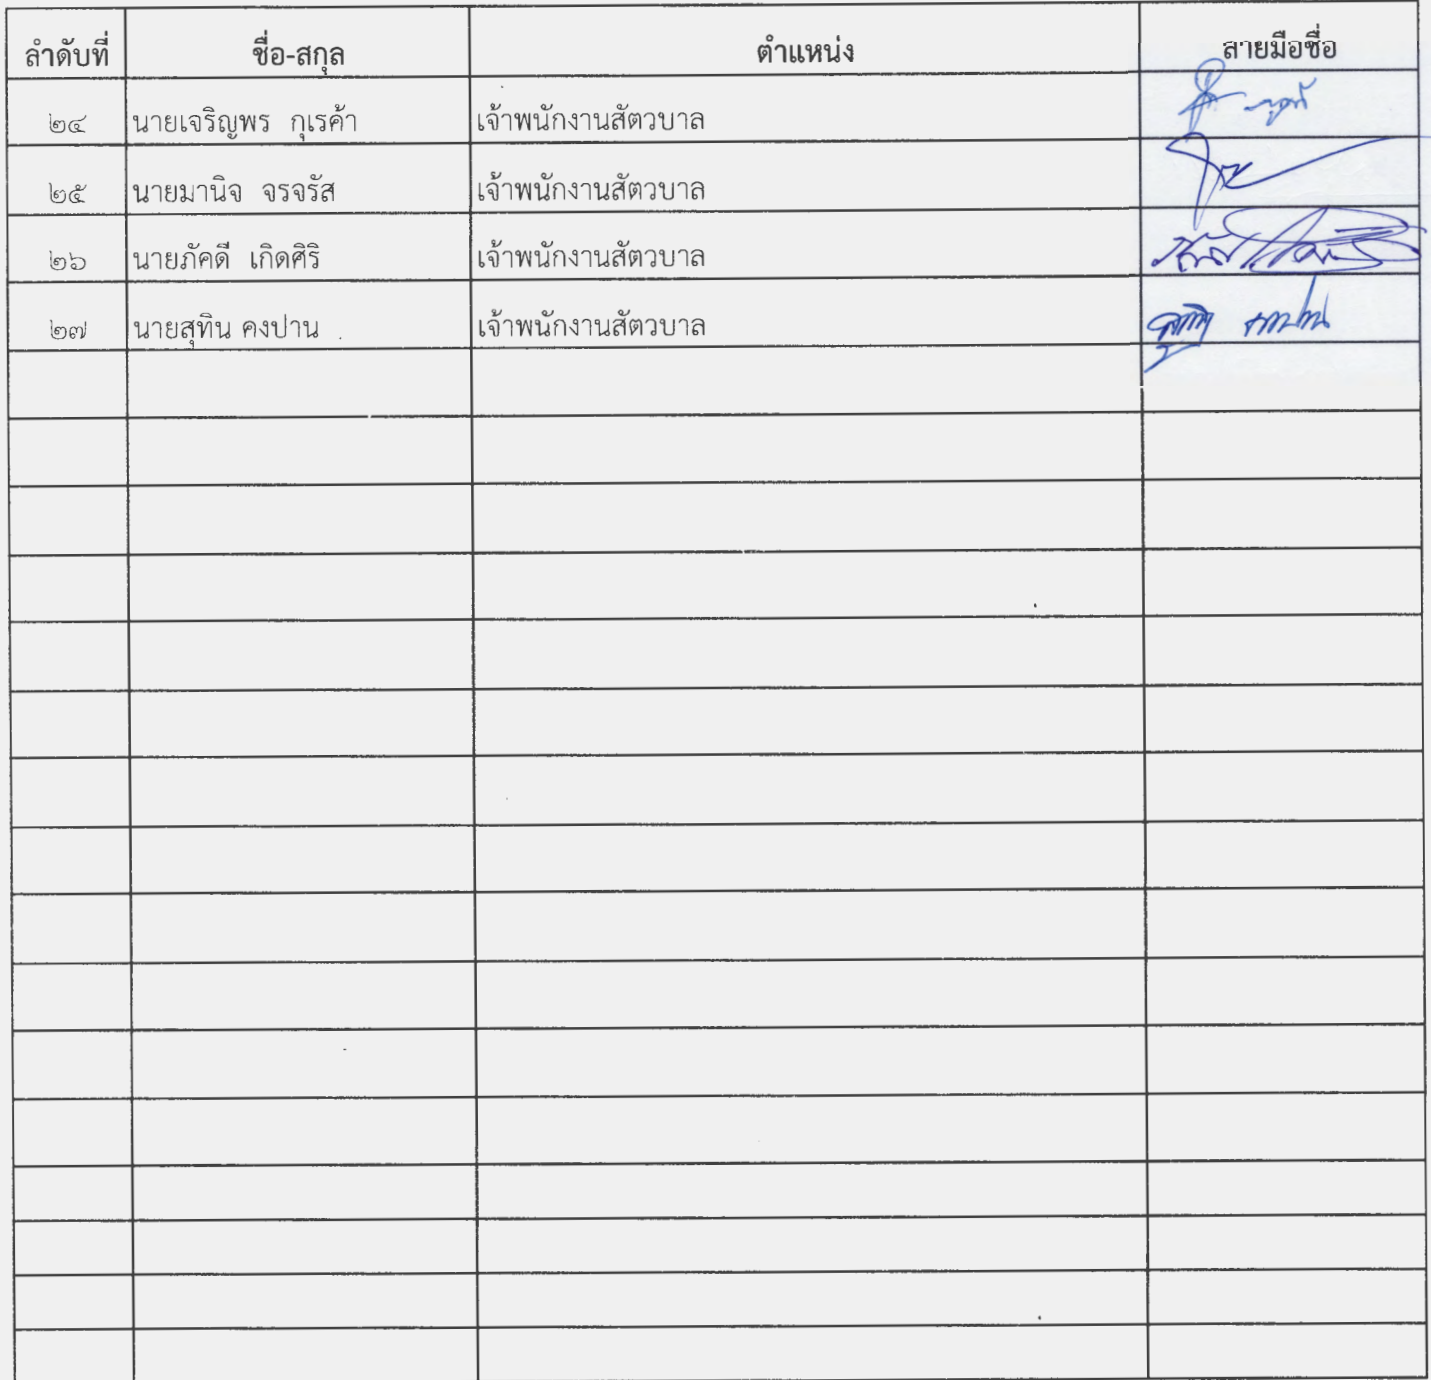 ลำดับที่ ชื่อ-สกุล ตำแหน่ง ลายมือชื่อ
๒๔ นายเจริญพร กุเรค้า เจ้าพนักงานสัตวบาล
๒๕ นายมานิจ จรจรัส เจ้าพนักงานสัตวบาล
๒๖ นายภัคดี เกิดศิริ เจ้าพนักงานสัตวบาล
๒๗ นายสุทิน คงปาน เจ้าพนักงานสัตวบาล